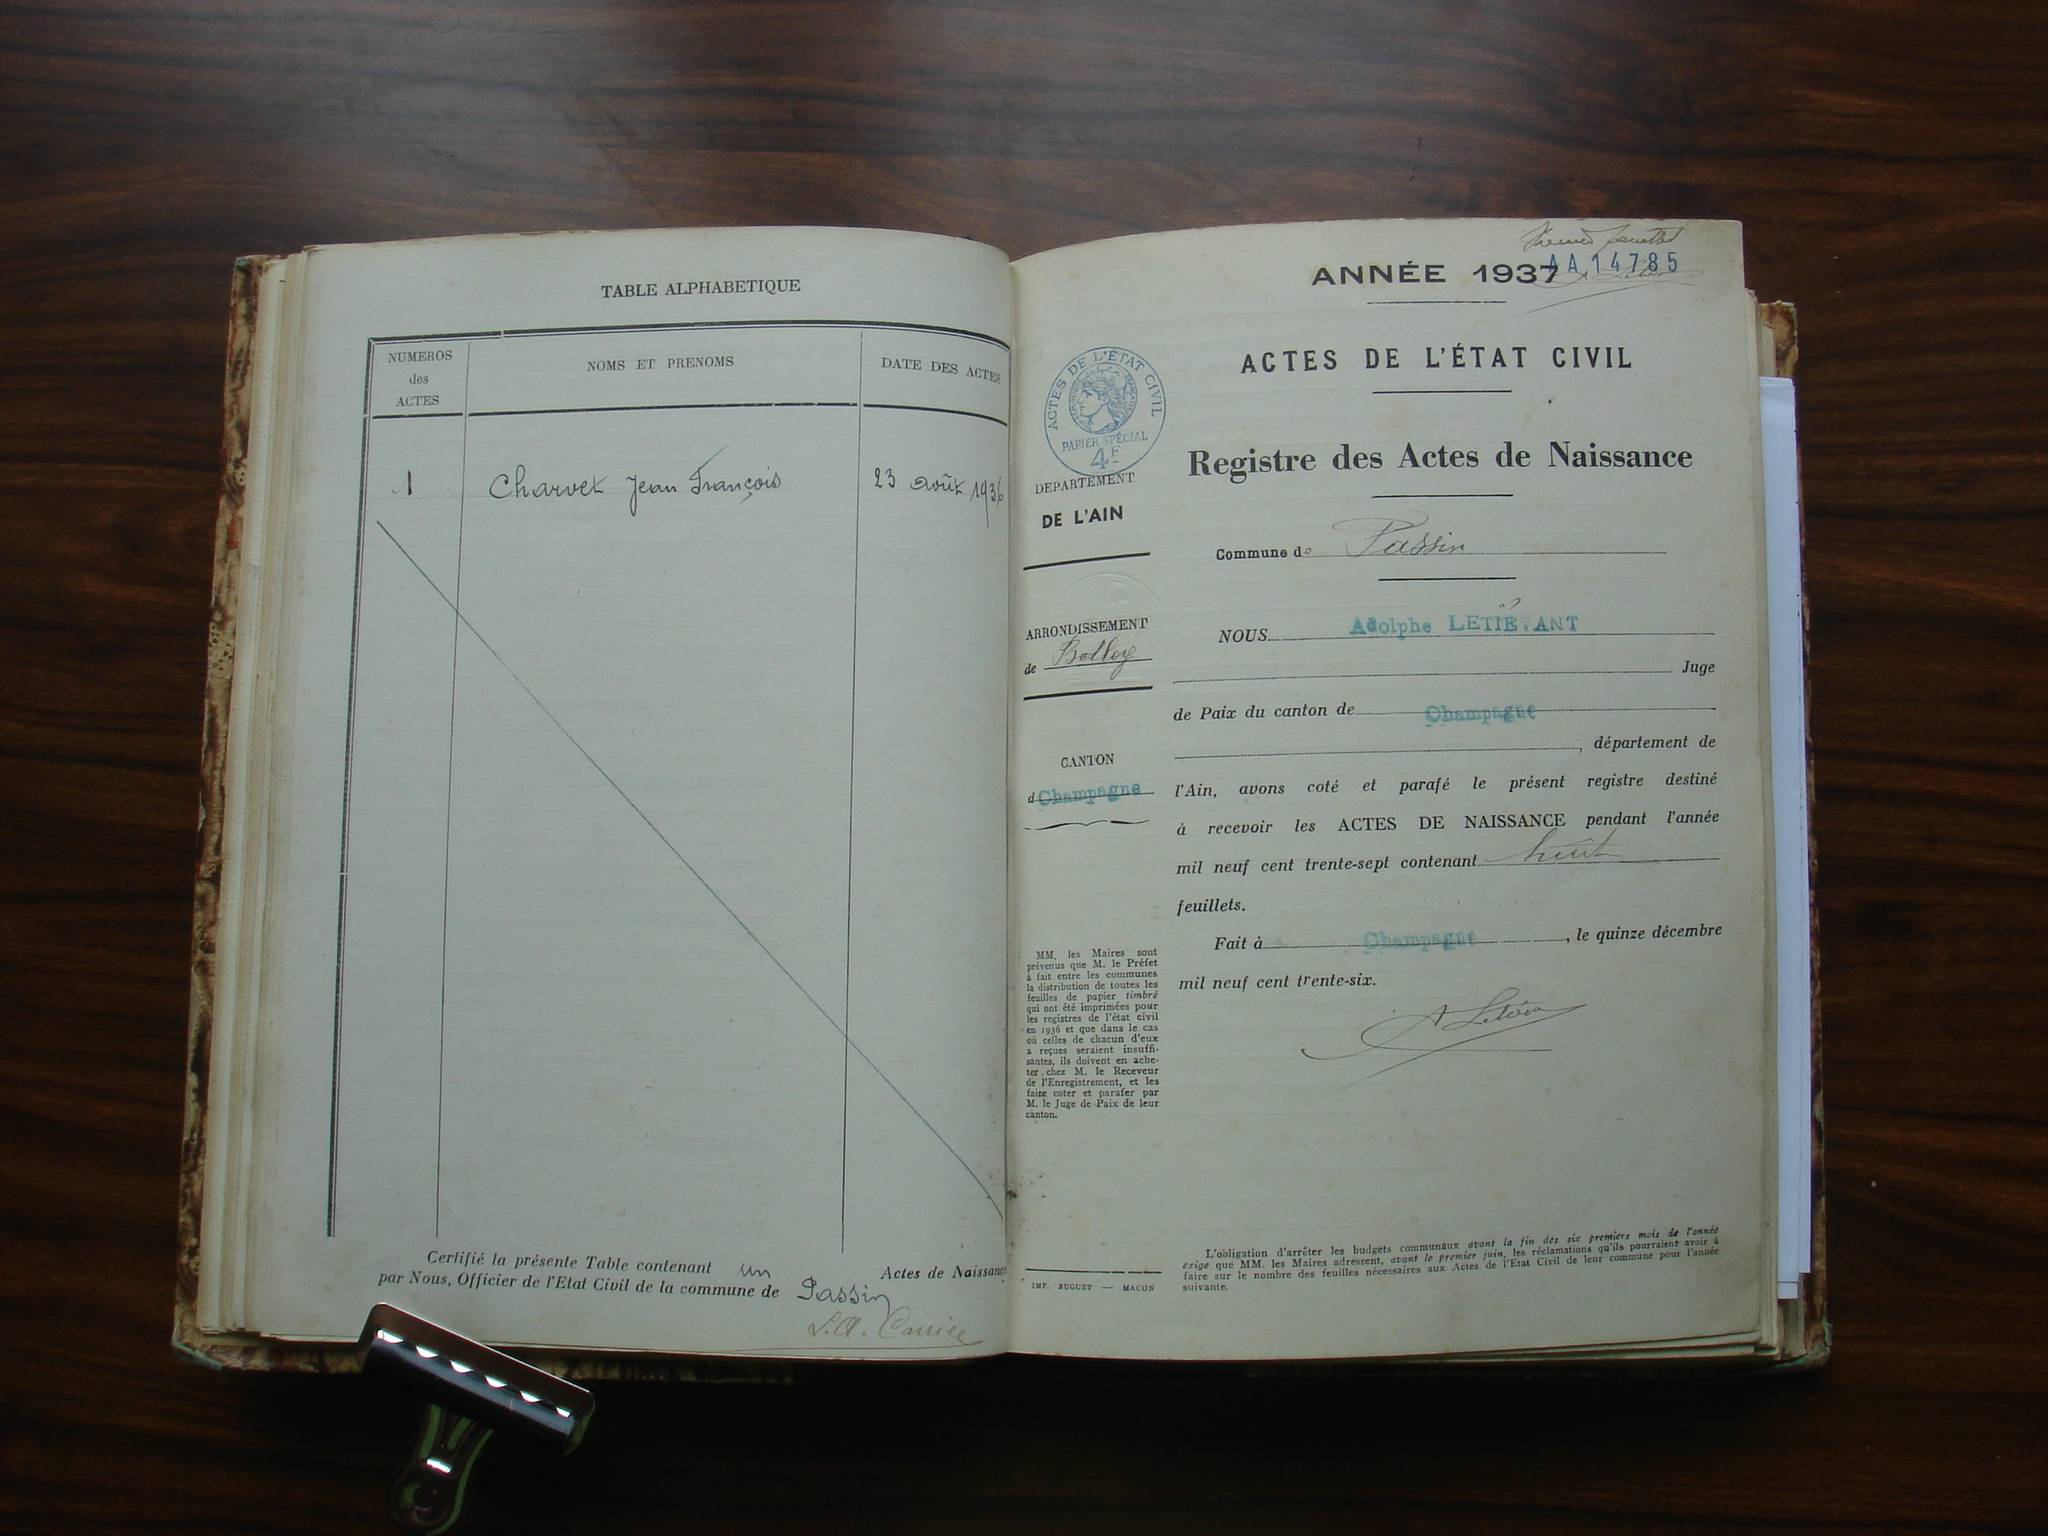 TABLE ALPHABETIQUE
NUMEROS
des
ACTES
NOMS ET PRENOMS
DATE DES ACTES
1
Charvet Jean François
23 août 1936
Certifié la présente Table contenant un Actes de Naissance
par Nous, Officier de l'Etat Civil de la commune de Passin
AA14785
ANNÉE 1937
ACTES DE L'ÉTAT CIVIL
Registre des Actes de Naissance
Commune de Passin
ACTES DE L'ÉTAT CIVIL
RÉPUBLIQUE FRANÇAISE
PAPIER SPÉCIAL
4F
DEPARTEMENT
DE L'AIN
ARRONDISSEMENT
de Belley
CANTON
d Champagne
MM. les Maires sont
prévenus que M. le Préfet
a fait entre les communes
la distribution de toutes les
feuilles de papier timbré
qui ont été imprimées pour
les registres de l'état civil
en 1936 et que dans le cas
où celles de chacun d'eux
a reçues seraient insuffi-
santes, ils doivent en ache-
ter chez M. le Receveur
de l'Enregistrement, et les
faire coter et parafer par
M. le Juge de Paix de leur
canton.
IMP. BUGUET — MACON
NOUS Adolphe LETIÉVANT
Juge
de Paix du canton de Champagne
, département de
l'Ain, avons coté et parafé le présent registre destiné
à recevoir les ACTES DE NAISSANCE pendant l'année
mil neuf cent trente-sept contenant huit
feuillets.
Fait à Champagne, le quinze décembre
mil neuf cent trente-six.
L'obligation d'arrêter les budgets communaux avant la fin des six premiers mois de l'année
exige que MM. les Maires adressent, avant le premier juin, les réclamations qu'ils pourraient avoir à
faire sur le nombre des feuilles nécessaires aux Actes de l'Etat Civil de leur commune pour l'année
suivante.